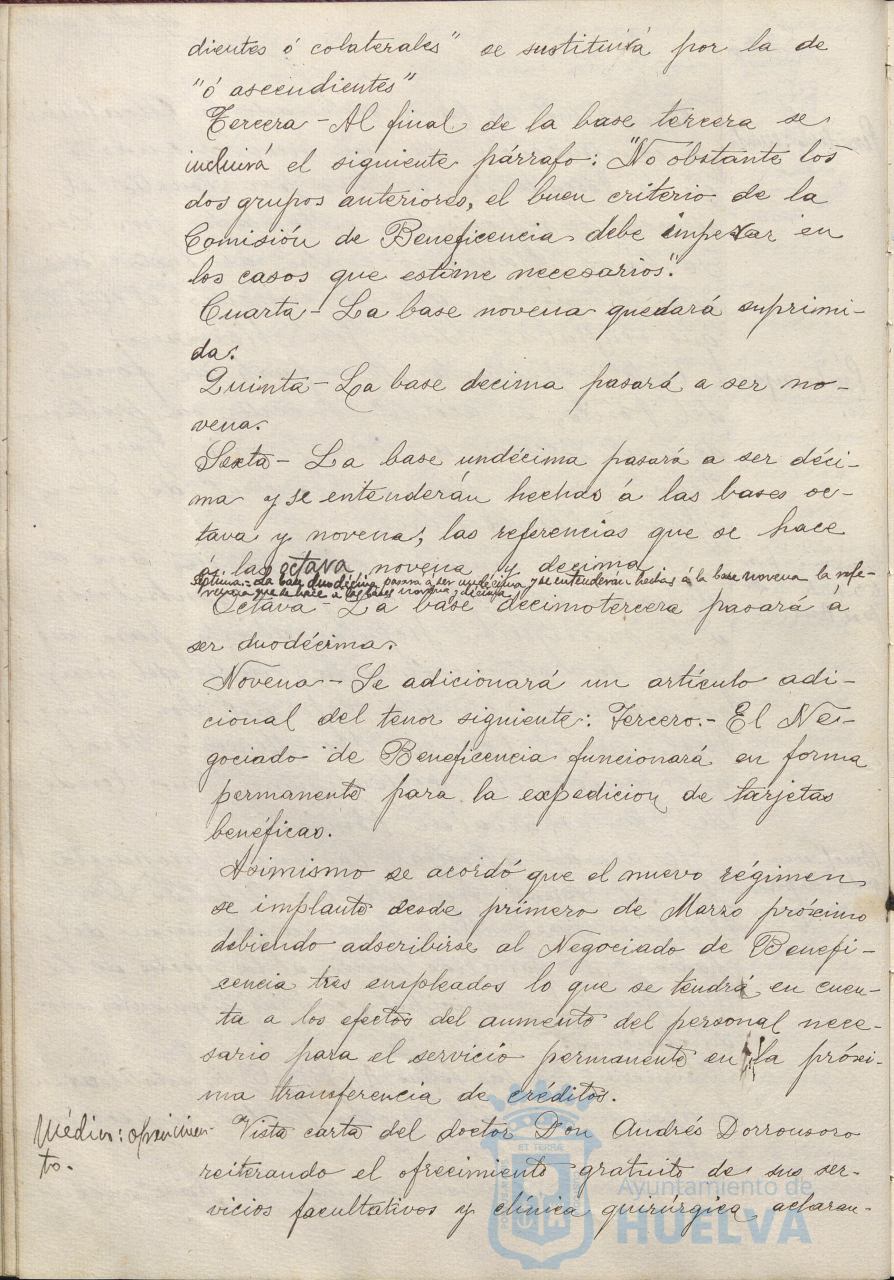 dientes ó colaterales" se sustituirá por la de
"ó ascendientes"
Tercera - Al final de la base tercera se
incluirá el siguiente párrafo: "No obstante los
dos grupos anteriores, el buen criterio de la
Comisión de Beneficencia debe imperar en
los casos que estime necesarios".
Cuarta - La base novena quedará suprimi-
da.
Quinta - La base decima pasará a ser no-
vena.
Sexta - La base undécima pasará a ser déci-
ma y se entenderán hechas á las bases oc-
tava y novena, las referencias que se hace
á las octava novena y decima
Septima.- La base duodécima pasará a ser undécima y se entenderán hechas á la base novena la refe-
rencia que se hace a las bases novena y décima
Octava - La base decimotercera pasará á
ser duodécima.
Novena - Se adicionará un artículo adi-
cional del tenor siguiente: Tercero.- El Ne-
gociado de Beneficencia funcionará en forma
permanente para la expedicion de tarjetas
benéficas.
Asimismo se acordó que el nuevo régimen
se implante desde primero de Marzo próximo
debiendo adscribirse al Negociado de Benefi-
cencia tres empleados lo que se tendrá en cuen-
ta a los efectos del aumento del personal nece-
sario para el servicio permanente en la próxi-
ma transferencia de créditos.
Médico: ofrecimien-
to.
Vista carta del doctor Don Andrés Dorronsoro
reiterando el ofrecimiento gratuito de sus ser-
vicios facultativos y clínica quirúrgica aclaran-
ET TERRÆ
Ayuntamiento de
HUELVA